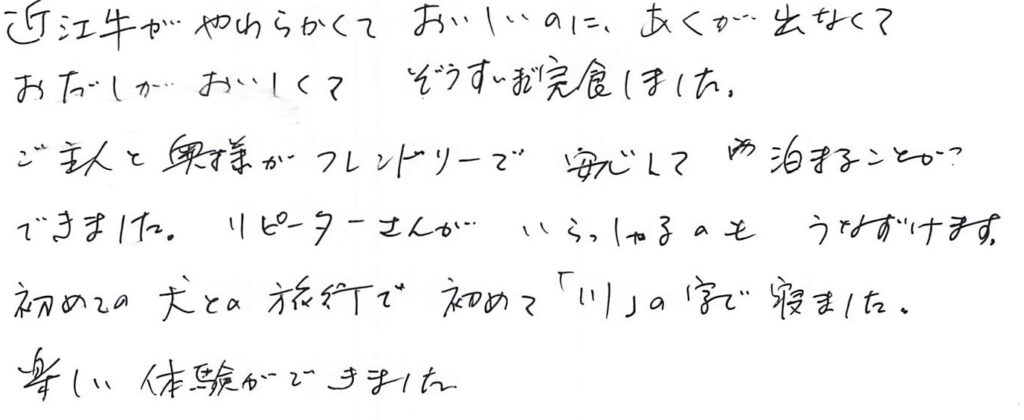 近江牛がやわらかくて おいしいのに、あくが出なくて
おだしが おいしくて ぞうすいまで完食しました。
ご主人と奥様がフレンドリーで 安心して 泊まることが
できました。リピーターさんが いらっしゃるのも うなずけます。
初めての 犬との 旅行で 初めて「川」の字で 寝ました。
楽しい 体験ができました